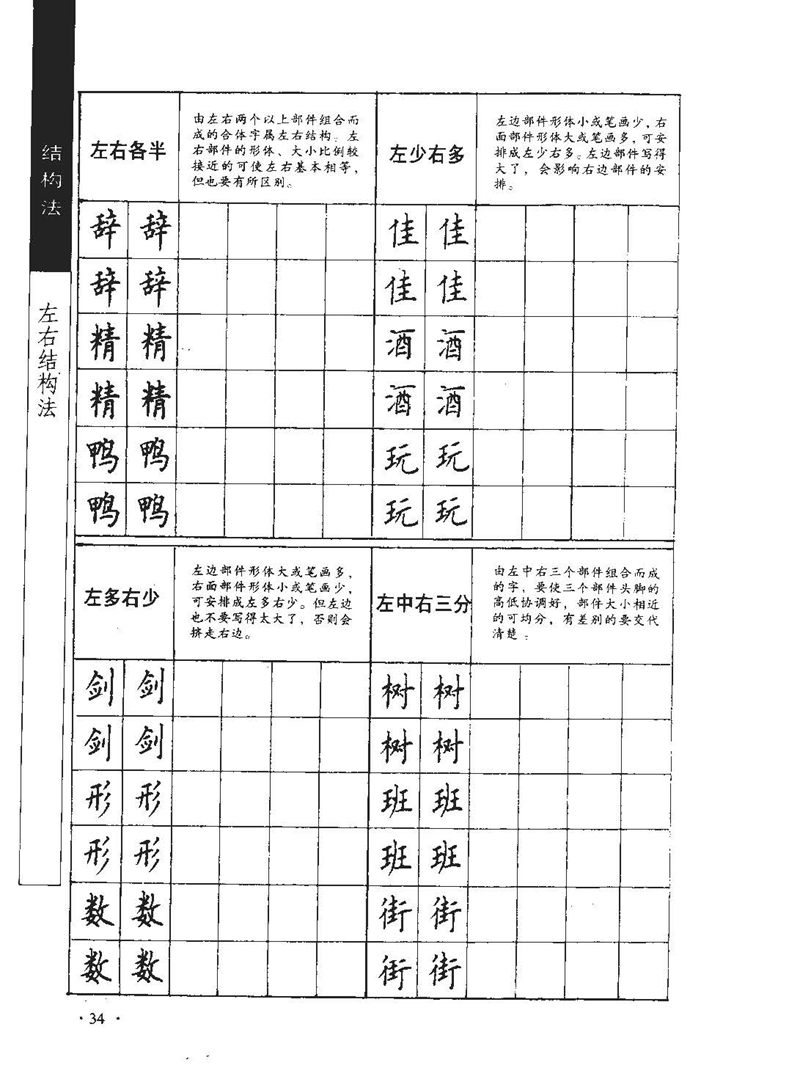 结构法
左右结构法
左右各半
由左右两个以上部件组合而
成的合体字属左右结构。左
右部件的形体、大小比例较
接近的可使左右基本相等,
但也要有所区别。
辞 辞
辞 辞
精 精
精 精
鸭 鸭
鸭 鸭
左少右多
左边部件形体小或笔画少,右
面部件形体大或笔画多,可安
排成左少右多。左边部件写得
大了,会影响右边部件的安
排。
佳 佳
佳 佳
酒 酒
酒 酒
玩 玩
玩 玩
左多右少
左边部件形体大或笔画多,
右面部件形体小或笔画少,
可安排成左多右少。但左边
也不要写得太大了,否则会
挤走右边。
剑 剑
剑 剑
形 形
形 形
数 数
数 数
左中右三分
由左中右三个部件组合而成
的字,要使三个部件头脚的
高低协调好,部件大小相近
的可均分,有差别的要交代
清楚。
树 树
树 树
班 班
班 班
街 街
街 街
·34·